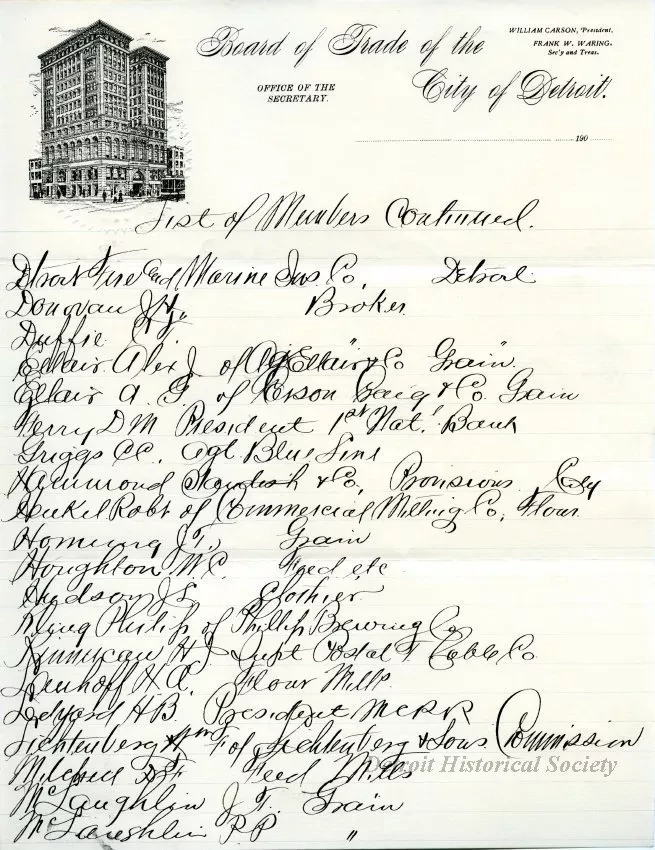 Board of Trade of the
City of Detroit.
WILLIAM CARSON, President.
FRANK W. WARING,
Sec'y and Treas.
OFFICE OF THE
SECRETARY.
190
List of Members Continued.
Detroit Fire and Marine Ins Co, Detroit
Donovan J Broker
Duffie
Ellair Alex J of Ellair & Co Grain
Ellair A. F of Cason Craig & Co. Grain
Ferry D M President 1st Nat. Bank
Griggs CC. Agt. Blue Line
Hammond Standish & Co, Provisions City
Henkel Robt of Commercial Milling Co, Flour
Hornung J. T, Grain
Houghton W. C. Feed etc
Hudson J L Clothier
Kling Philip of Phillip Brewing Co
H Supt Postal T Cable Co
H. A. Flour Mills
Ledyard H B. President M C R R
Lichtenberg Wm F of Lichtenberg & Sons Commission
F Feed Mills
McLaughlin J. T. Grain
McLaughlin P. P "
Detroit Historical Society